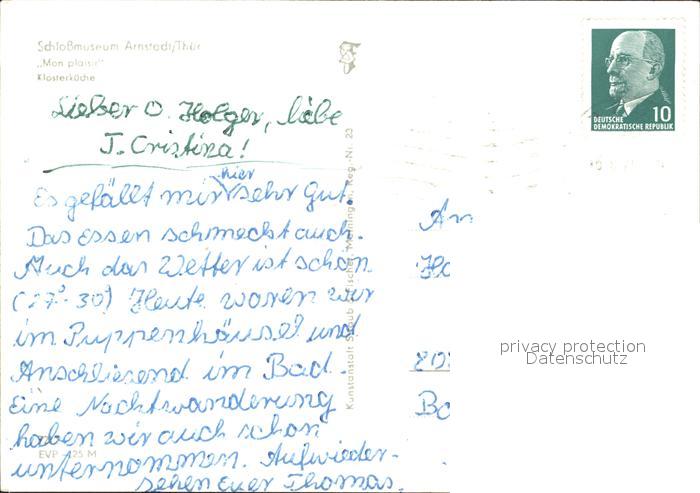 Schloßmuseum Arnstadt/Thür.
„Mon plaisir"
Klosterküche
DEUTSCHE
DEMOKRATISCHE REPUBLIK
10
Lieber O. Holger, liebe
T. Cristina!
Es gefällt mir hier sehr Gut.
Das essen schmeckt auch.
Auch das Wetter ist schön
(27°-30) Heute waren wir
im Puppenhäusel und
Anschliesend im Bad.
Eine Nachtwanderung
haben wir auch schon
unternommen. Aufwieder-
sehen Euer Thomas.
EVP 25 M
Kunstanstalt Straub
Reg.-Nr. 23
An
privacy protection
Datenschutz